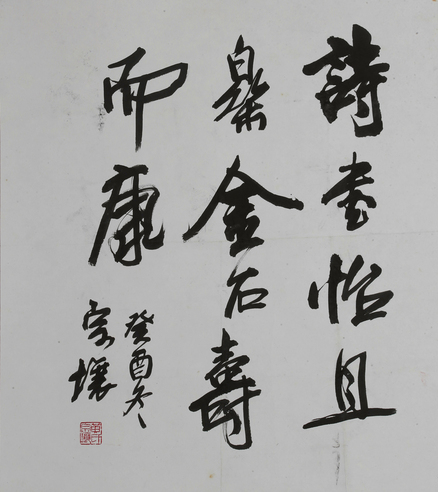 詩書怡且
樂金石壽
而康
癸酉冬
宗壤